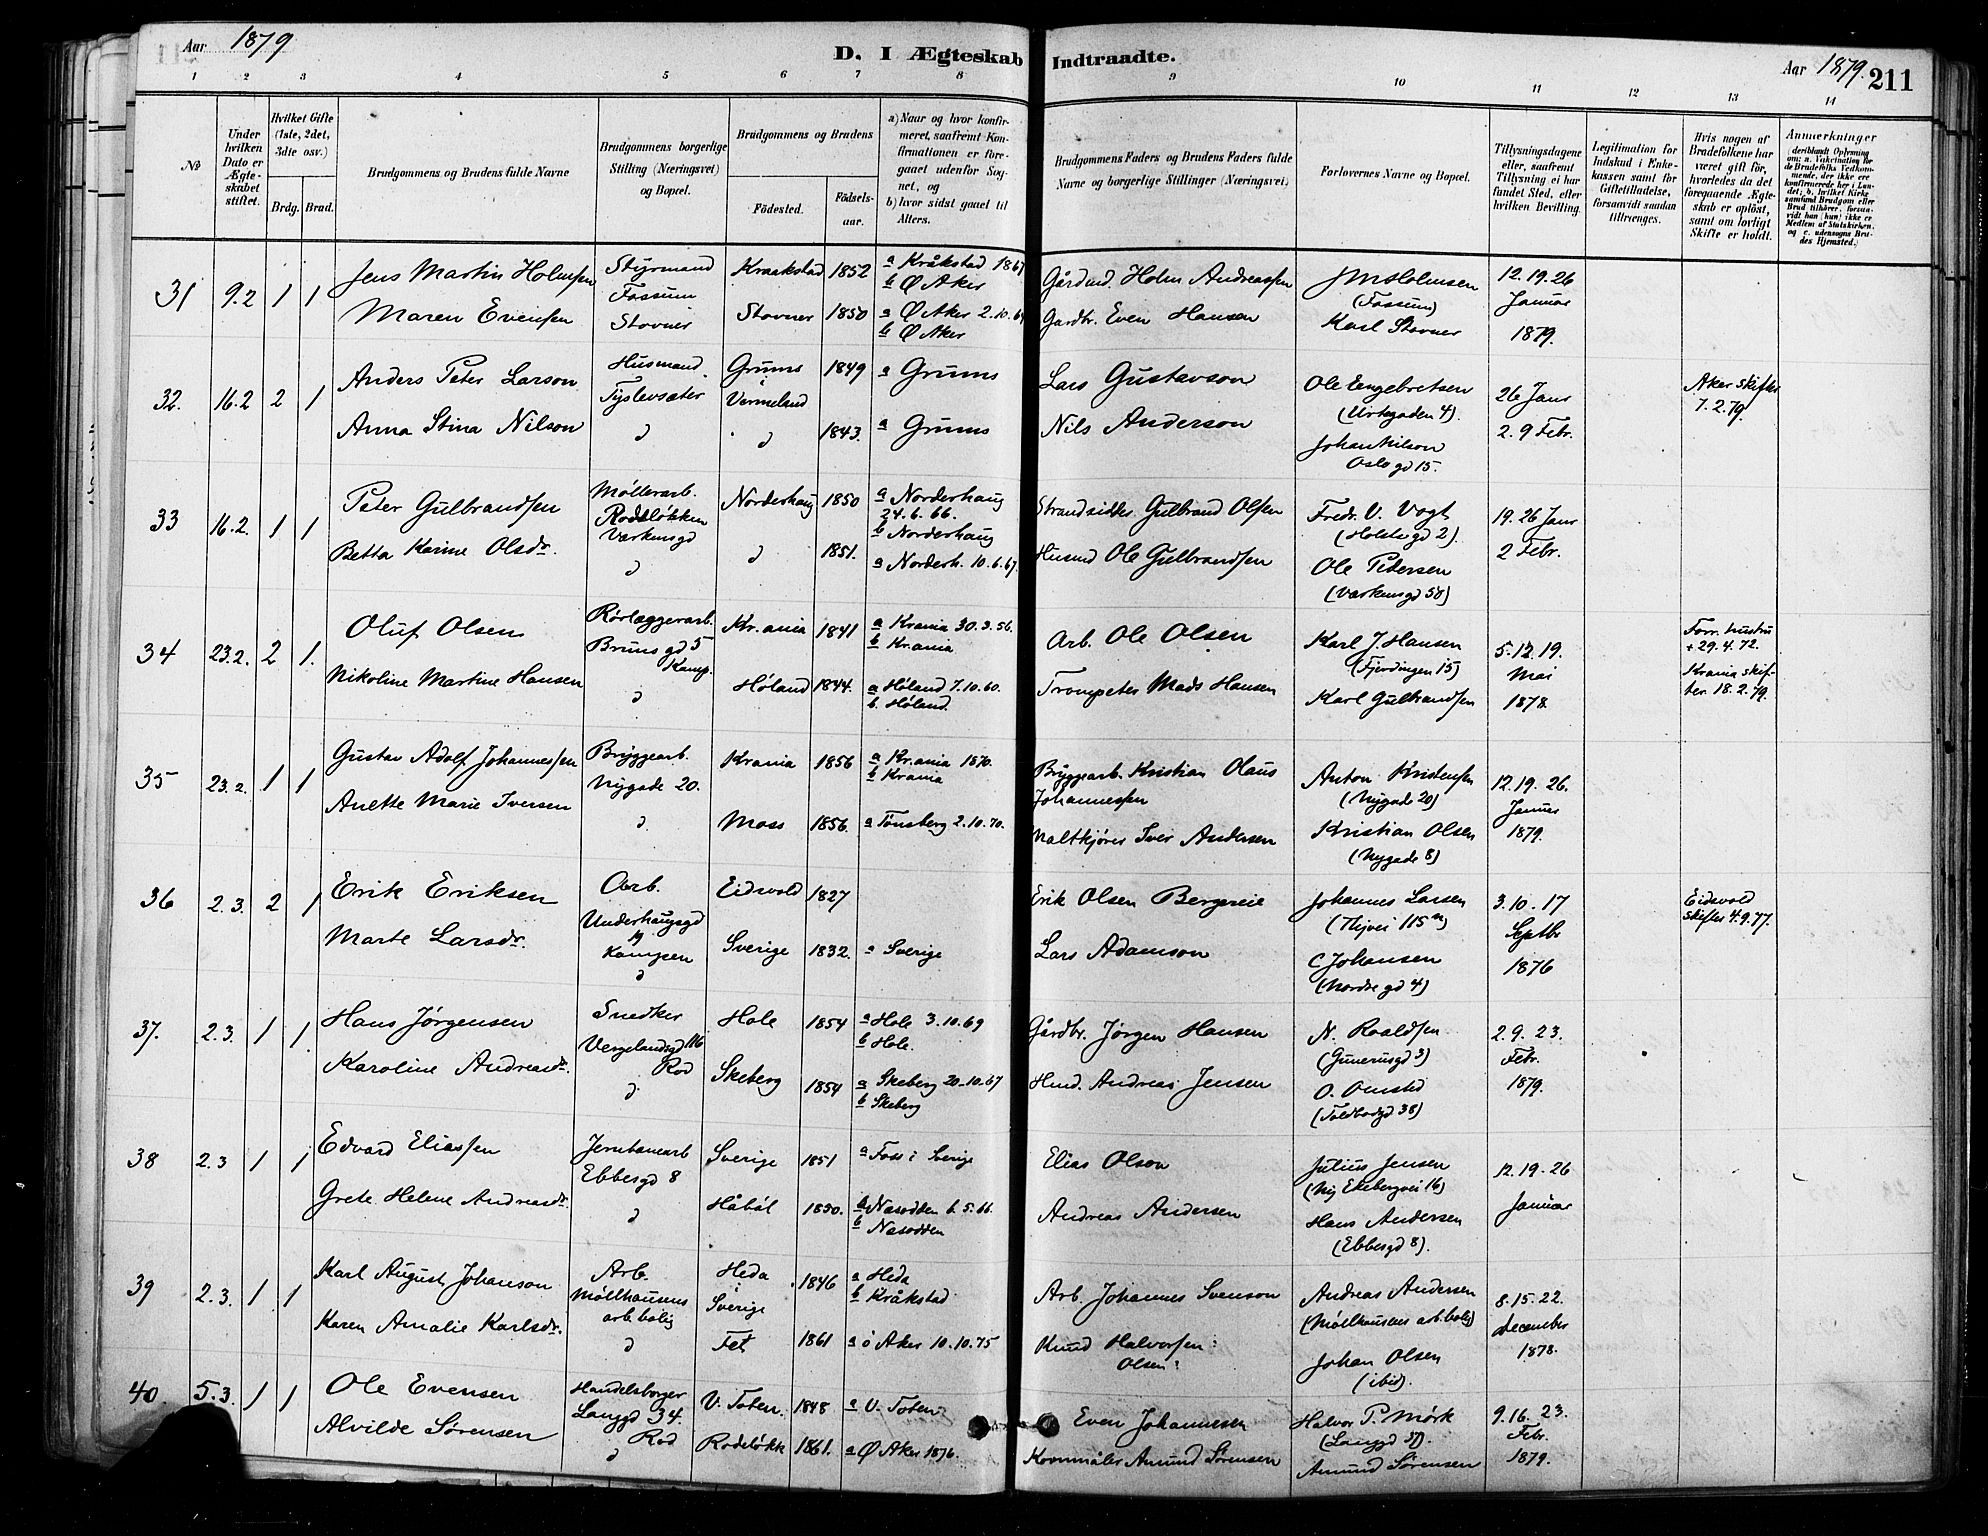 Aar 1879
D. I Ægteskab Indtraadte.
Aar 1879. 211
1 2 3 4 5 6 7 8 9 10 11 12 13 14
No
Under hvilken Dato er Ægteskabet stiftet.
Hvilket Gifte (1ste, 2det, 3die osv.)
Brdg. Brud.
Brudgommens og Brudens fulde Navne
Brudgommens borgerlige Stilling (Næringsvei) og Bopæl.
Brudgommens og Brudens
Födested. Födsels-aar.
a) Naar og hvor konfirmeret, saafremt Konfirmationen er foregaaet udenfor Sognet, og
b) hvor sidst gaaet til Alters.
Brudgommens Faders og Brudens Faders fulde Navne og borgerlige Stillinger (Næringsvei)
Forlovernes Navne og Bopæl.
Tillysningsdagene eller, saafremt Tillysning ei har fundet Sted, efter hvilken Bevilling.
Legitimation for Indskud i Enkekassen samt for Giftetilladelse, forsaavidt saadan tiltrænges.
Hvis nogen af Brudefolkene har været gift før, hvorledes da det foregaaende Ægteskab er oplöst, samt om lovligt Skifte er holdt.
Anmerkninger (deriblandt Oplysning om: a. Vakcination for de Brudefolks Vedkommende, der ikke ere konfirmerede her i Landet; b. hvilket Kirkesamfund Brudgom eller Brud tilhörer, forsaavidt han (hun) ikke er Medlem af Statskirken, og c. udensogns Brudes Hjemsted.)
31 9.2 1 1 Jens Martin Holmsen Styrmand Fossum Kraakstad 1852 a Kråkstad 1867 b Ø Aker Gårdmd. Holm Andreassen J M Holmsen (Fossum) 12. 19. 26
Maren Evensen Stovner Stovner 1850 a Ø Aker 2.10.64 b Ø Aker Gardbr. Even Hansen Karl Stovner Januar 1879.
32. 16.2 2 1 Anders Peter Larson Husmand Tyslevsæter Grums i Vermeland 1849 a Grums Lars Gustavson Ole Engebretsen (Urtegaden 4). 26 Janr Aker skifter 7.2.79.
Anna Stina Nilson d d 1843. a Grums Nils Anderson Johan Nilson Oslo gd 15. 2. 9 Febr.
33 16.2. 1 1 Peter Gulbrandsen Møllerarb. Rodeløkken Værkensgd Norderhaug 1850 a Norderhaug 24.6.66. b Norderhaug Strandsidder Gulbrand Olsen Fredr. V. Vogt (Holstsgd 2). 19. 26 Janr
Betta Karine Olsdr. d d 1851. a Norderh. 10.6.67. Husmd Ole Gulbrandsen Ole Pedersen (Værkensgd 58) 2 Febr.
34 23.2. 2 1. Oluf Olsen Rørlæggerarb. Bruns gd 5 Kamp. Kr.ania 1841 a Krania 30.3.56. b Kr.ania Arb. Ole Olsen Karl J. Hansen (Fjerdingen 15) 5. 12. 19. Forr. hustru + 29.4.72.
Nikoline Martine Hansen d Høland 1844. a Høland 7.10.60. b. Høland. Trompeter Mads Hansen Karl Gulbrandsen Mai 1878. Krania skifter. 18.2.79.
35 23.2. 1 1 Gustav Adolf Johannessen Bryggearb. Nygade 20. Krania 1856 a Kr.ania 1870. b Krania Bryggarb. Kristian Olaus Johannessen Anton Kristensen (Nygade 20) 12. 19. 26.
Anette Marie Iversen d. Moss 1856. a Tønsberg 2.10.70. Maltkjører Iver Andersen Kristian Olsen (Nygade 8) Januar 1879.
36 2.3. 2 1 Erik Eriksen Arb. Underhaugsgd 19 Kampen Eidsvold 1827 Erik Olsen Bergereie Johannes Larsen 3. 10. 17 Eidsvold skifter 4.9.77.
Marte Larsdr. d Sverige 1832. a Sverige Lars Adamson C Johansen (Nordre gd 4) Septbr 1876
37. 2.3. 1 1. Hans Jørgensen Snedker Vergelandsgd 116 Rod Hole 1854 a Hole 3.10.69 b Hole. Gårdbr. Jørgen Hansen N. Roaldsen (Gunerusgd 3) 2. 9. 23.
Karoline Andreasdr. d Skeberg 1854 a Skeberg 20.10.67 b Skeberg Hmd. Andreas Jensen O. Onsted (Toldbodgd 38) Febr. 1879.
38 2.3 1 1 Edvard Eliassen Jernbanearb Ebbesgd 8 Sverige 1851 a Foss i Sverige Elias Olson Julius Jensen (Ny Ekebergvei 16) 12. 19. 26
Grete Helene Andreasdr. d Håbøl 1850. a Næsodden 6.5.66. b Næsodden Andreas Andersen Hans Andersen (Ebbesgd 8). Januar
39 2.3. 1 1 Karl August Johanson Arb. Møllhausens arb. bolig Heda i Sverige 1846 a Heda b Kråkstad Arb. Johannes Svenson Andreas Andersen (Møllhausens arb. bolig) 8. 15. 22.
Karen Amalie Karlsdr. d Fet 1861 a ö Aker 10.10.75 Knud Halvorsen: Olsen: Johan Olsen (ibid). december 1878.
40. 5.3. 1 1 Ole Evensen Handelsborger Langgd 34. Rod V. Toten. 1848 a V. Toten Even Johannesen Halvor P. Mørk 9. 16. 23.
Alvilde Sørensen d Rodeløkk 1861. a Ø Aker 1876. Kornmåler Amund Sørensen Amund Sørensen Febr. 1879.